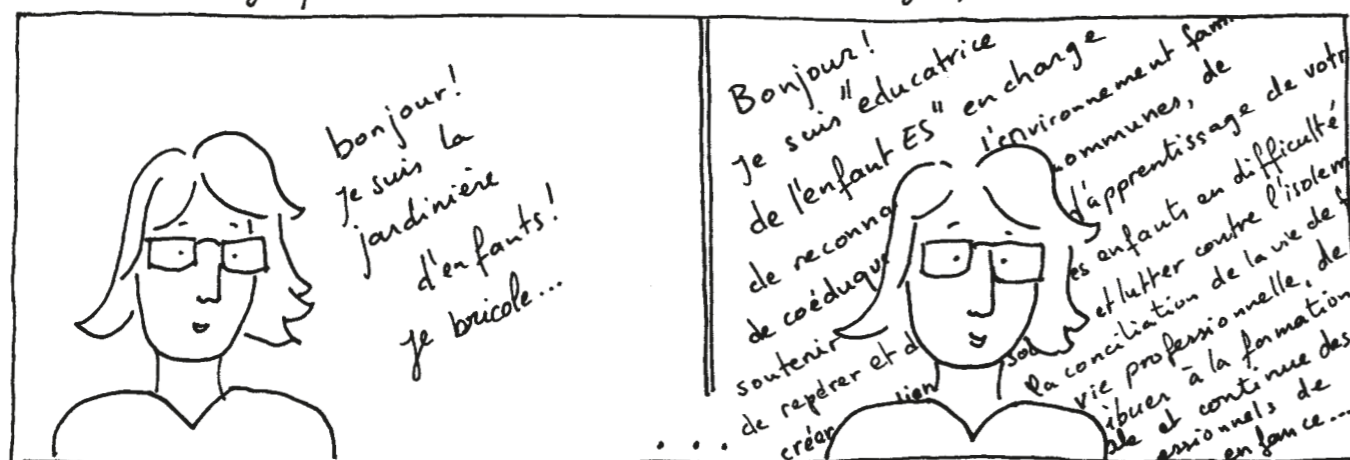 bonjour!
je suis la
jardinière
d'enfants!
je bricole...
Bonjour!
Je suis "educatrice
de l'enfant ES" en charge
de reconna l'environnement fam
de coéduqu communes, de
soutenir d'apprentissage de votr
de repérer et d es enfants en difficulté
créer lien soc et lutter contre l'isolem
la conciliation de la vie de f
vie professionnelle, de
ibuer à la formation
ale et continue des
essionnels de
enfance...
...